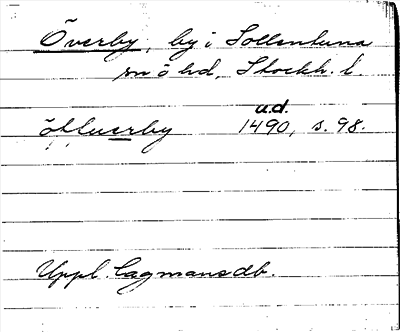 Överby, by i Sollentuna
sn ö hd, Stockh. l.
u.d.
öffuerby 1490, s. 98.
Uppl. Lagmansdb.